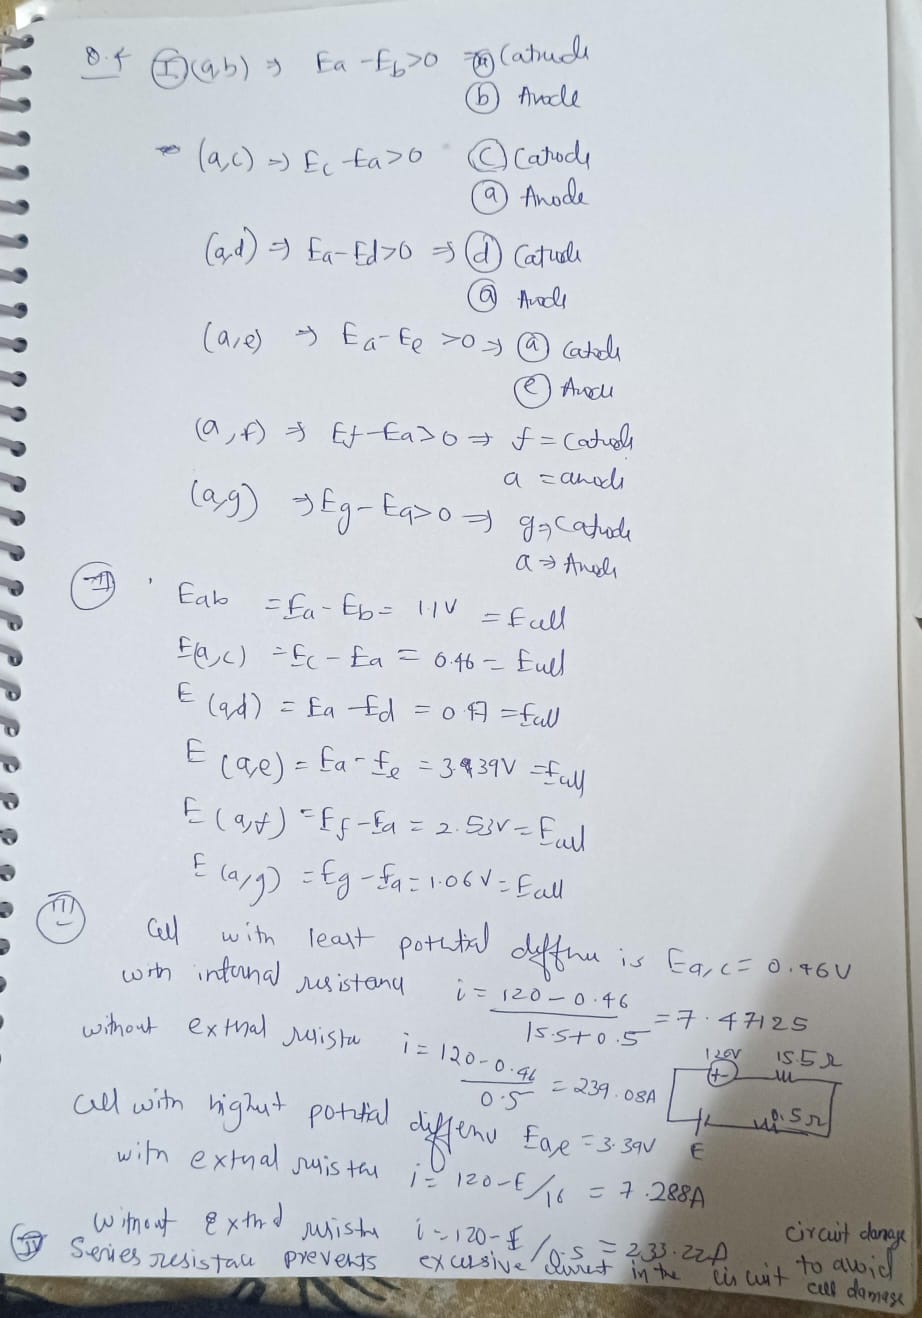 8.4 (I) (a,b) ⇒ Ea - Eb>0 ⇒ (a) Catude
(b) Anode
(a,c) ⇒ Ec - Ea>0 (c) Catode
(a) Anode
(a,d) ⇒ Ea - Ed>0 ⇒ (d) Catude
(a) Anode
(a,e) ⇒ Ea - Ee >0 ⇒ (a) Catode
(e) Anode
(a,f) ⇒ Ef - Ea>0 ⇒ f = Catode
a = anode
(a,g) ⇒ Eg - Ea>0 ⇒ g ⇒ Catode
a ⇒ Anode
(II) Eab = Ea - Eb = 1.1V = Ecell
E(a,c) = Ec - Ea = 0.46 = Ecell
E (a,d) = Ea - Ed = 0.47 = Ecell
E (a,e) = Ea - Ee = 3.39V = Ecell
E (a,f) = Ef - Ea = 2.53V = Ecell
E (a,g) = Eg - Ea = 1.06V = Ecell
(III) Cell with least potential diffrnu is Ea,c = 0.46V
with internal resistance i = 120 - 0.46 / 15.5+0.5 = 7.47125
without extnal resista i = 120 - 0.46 / 0.5 = 239.08A
120V 15.5Ω
0.5Ω
E
Cell with highest potential diffrenu Eae = 3.39V
with extnal resista i = 120-E/16 = 7.288A
without extnal resista i = 120-E/0.5 = 233.22A
(IV) Series resistace prevents excessive current in the circuit to avoid
circuit damage
cell damage